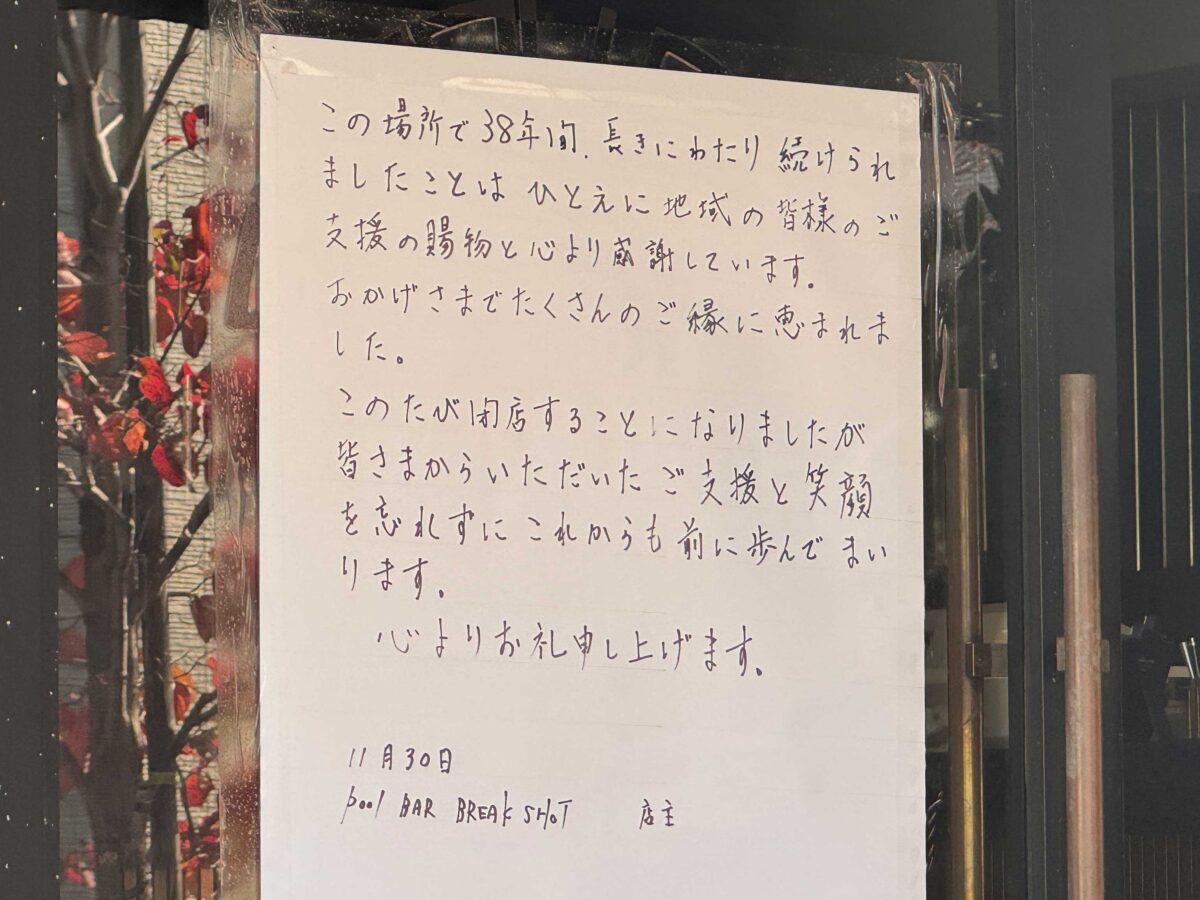 この場所で38年間、長きにわたり続けられ
ましたことは ひとえに地域の皆様のご
支援の賜物と心より感謝しています。
おかげさまでたくさんのご縁に恵まれま
した。
このたび閉店することになりましたが
皆さまからいただいたご支援と笑顔
を忘れずにこれからも前に歩んでまい
ります。
心よりお礼申し上げます。
11月30日
pool BAR BREAK SHOT 店主